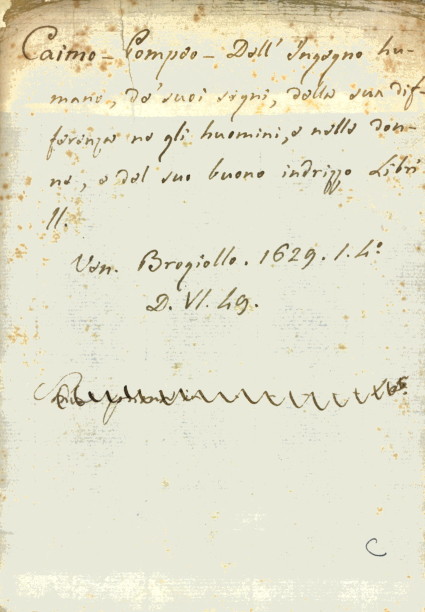 Caimo - Pompeo - Dell' Ingegno hu-
mano, de' suoi segni, della sua dif-
ferenza ne gli huomini, e nelle don-
ne, e del suo buono indrizzo Libri
II.
Ven. Brogiollo. 1629. 1. 4º
D. VI. 49.
C